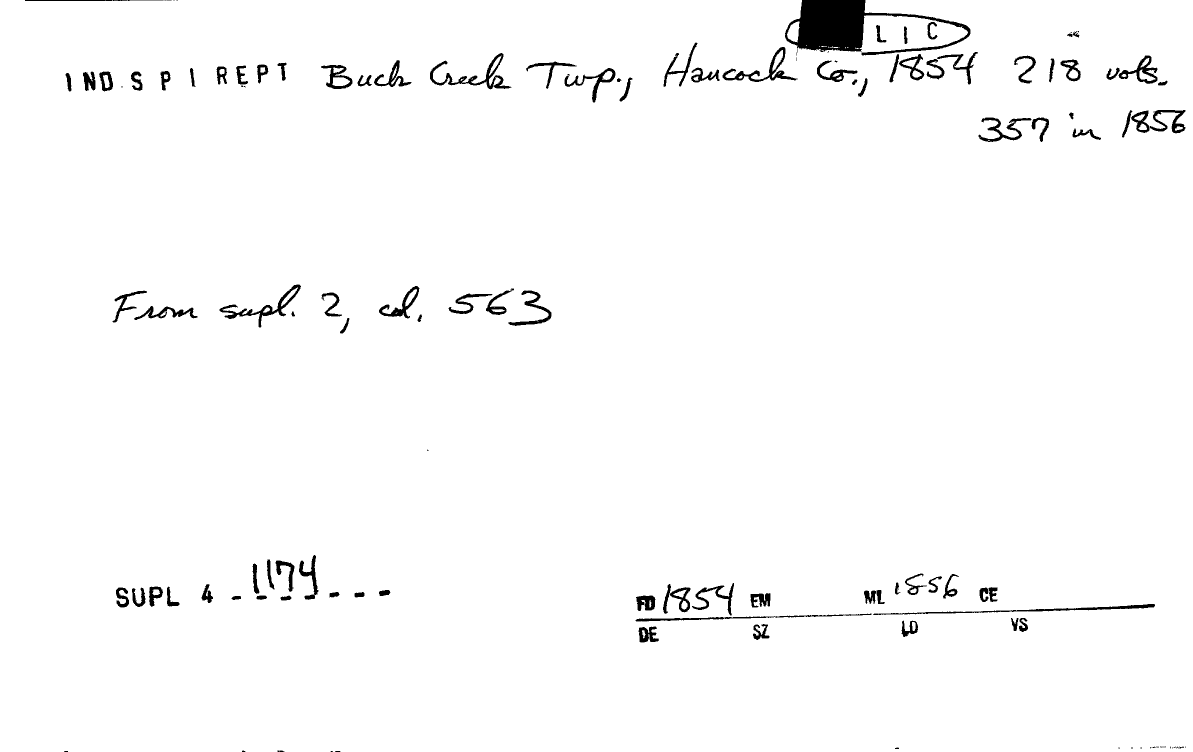 L I C
IND. S P I REPT Buck Creek Twp., Hancock Co., 1854 218 vols.
357 in 1856
From supl. 2, col. 563
SUPL 4 - 1174 - - -
FD 1854 EM ML 1856 CE
DE SZ LD VS